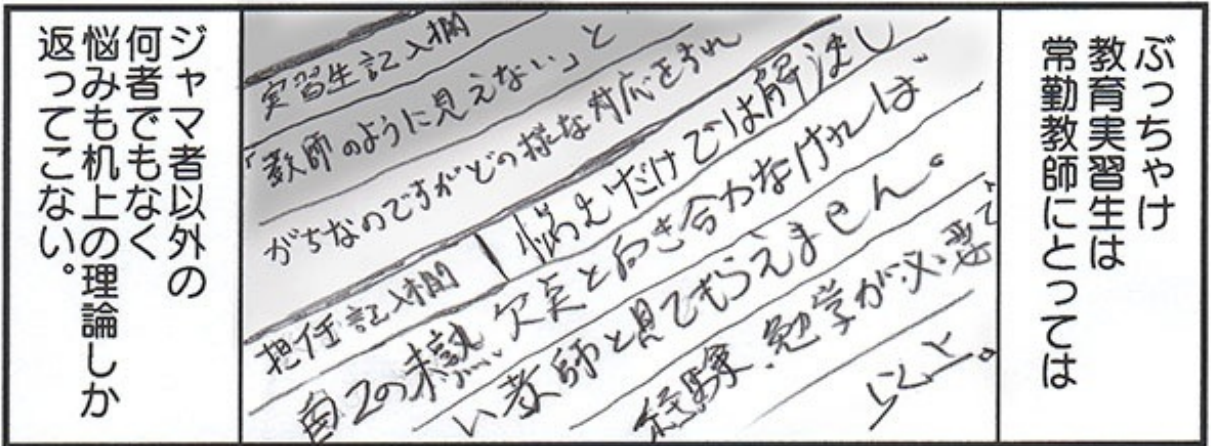 ぶっちゃけ
教育実習生は
常勤教師にとっては
実習生記入欄
「教師のように見えない」と
がちなのですがどの様な対応をすれ
担任記入欄
悩むだけでは解決し
自己の未熟、欠点と向き合わなければ
い教師と見てもらえません。
経験、勉学が必要で
以上。
ジャマ者以外の
何者でもなく
悩みも机上の理論しか
返ってこない。